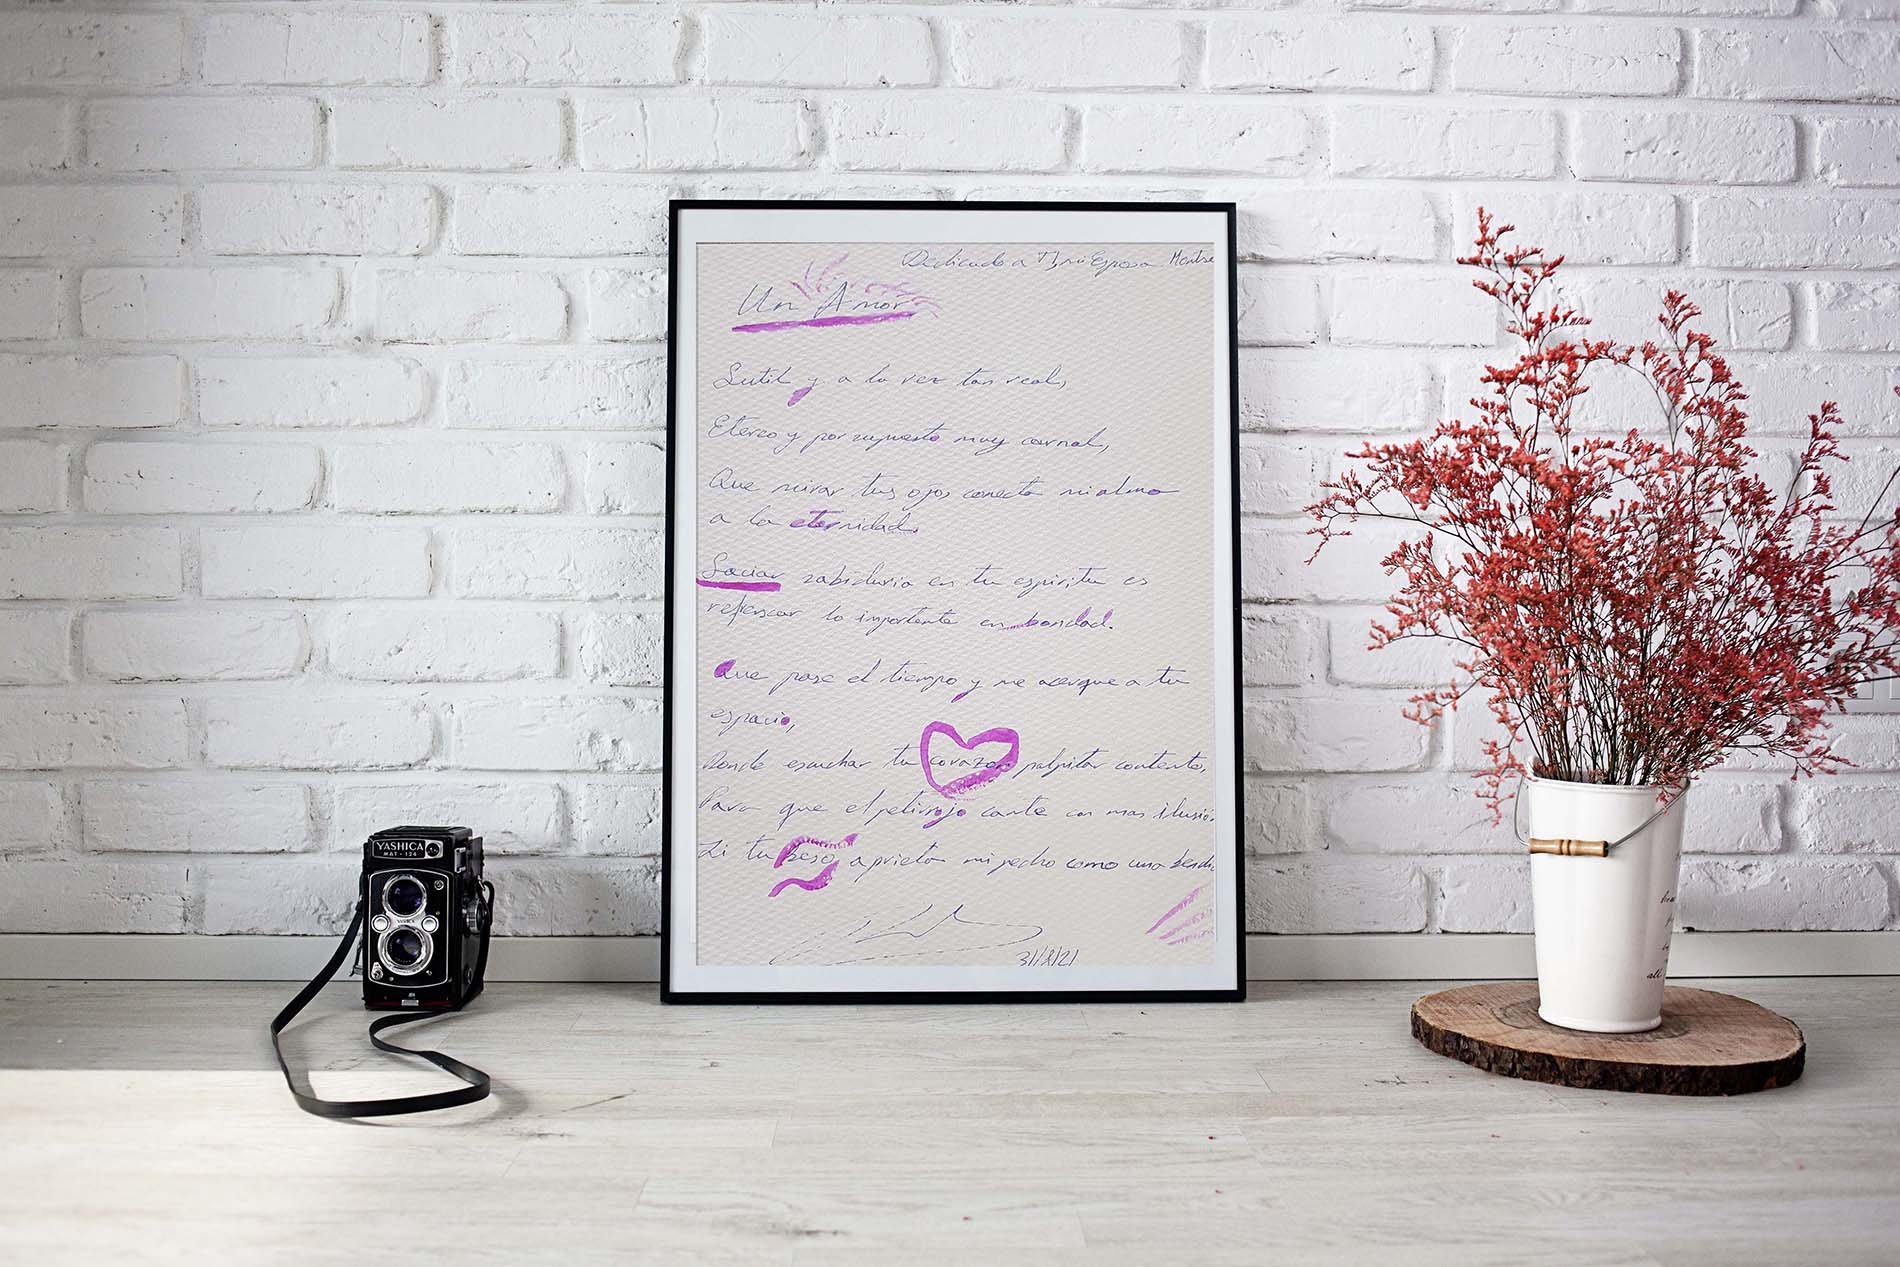 Dedicado a Mi Esposa Montse
Un Amor
Sutil y a la vez tan real,
Eterno y por supuesto muy carnal,
Que mirar tus ojos conecta mi alma
a la eternidad.
Saciar sabiduria en tu espiritu es
refrescar lo importante en bondad.
Que pase el tiempo y me acerque a tu
espacio,
Donde escuchar tu corazon palpitar contento,
Para que el petirrojo cante con mas ilusión
Si tu beso aprieta mi pecho como una
31/8/21
YASHICA
MAT-124
YASHICA
all